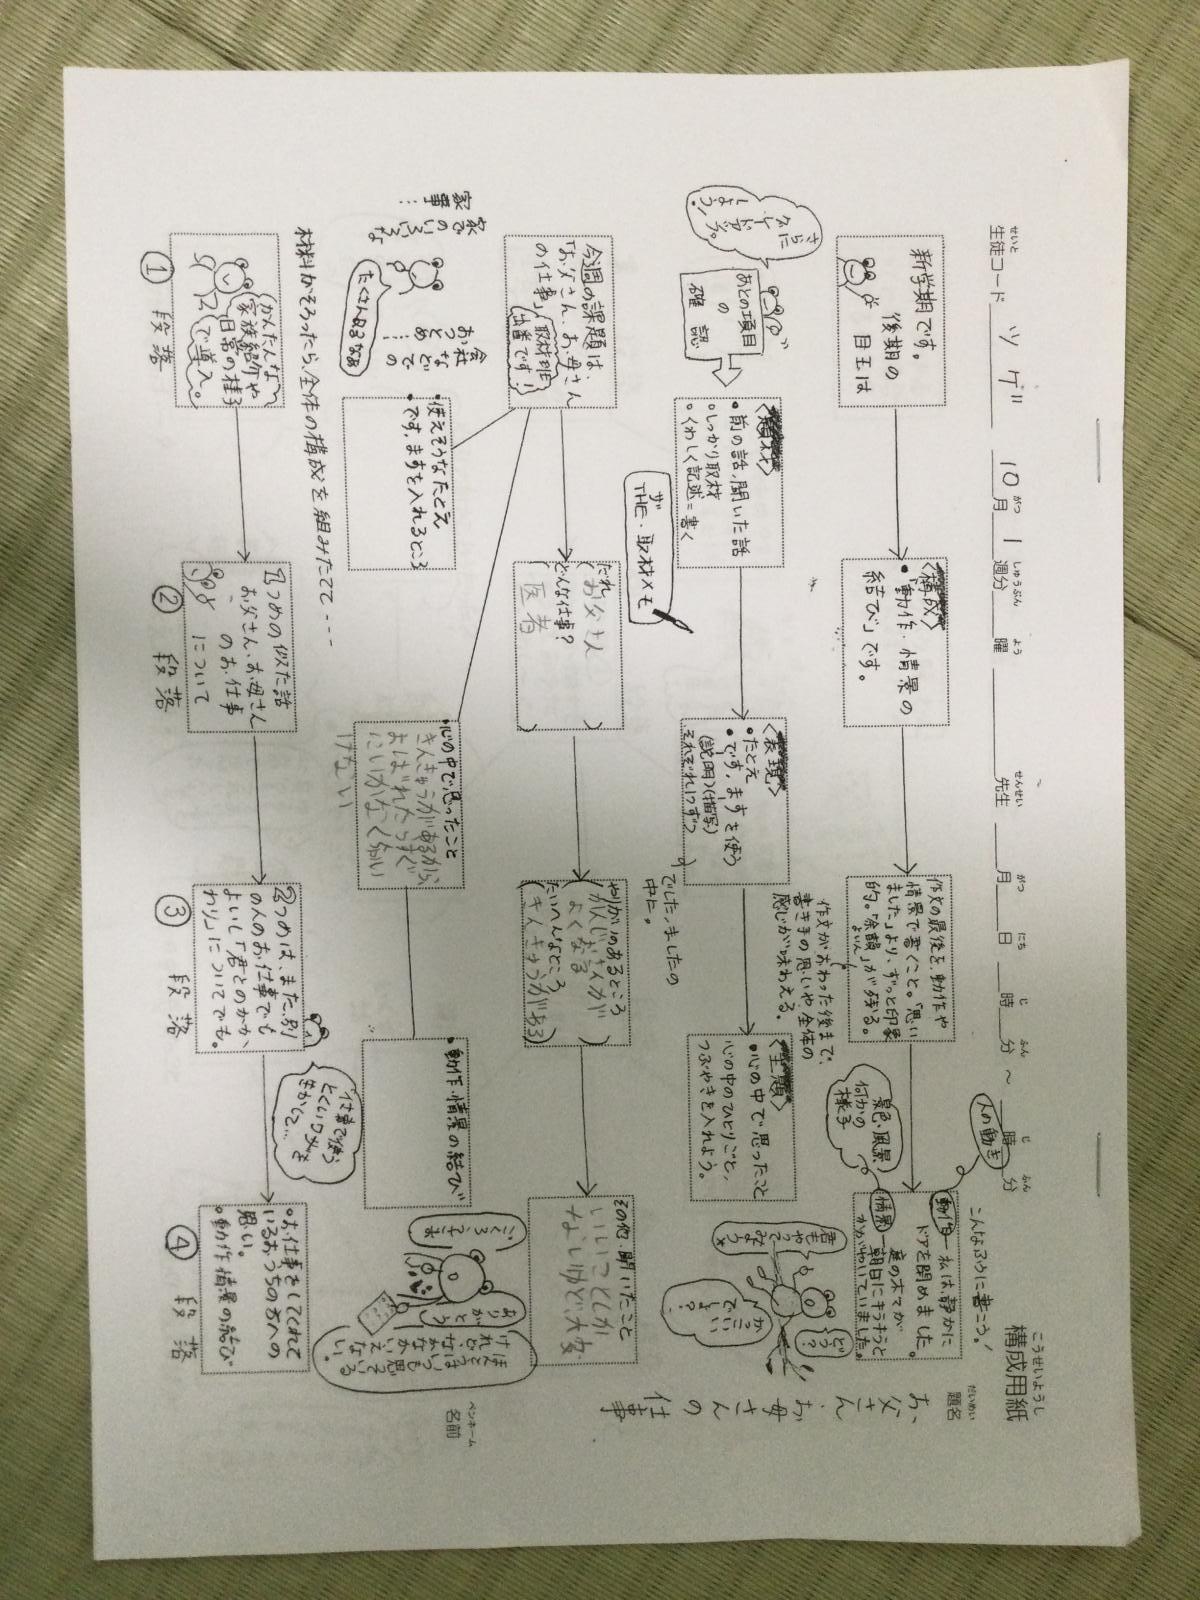 構成用紙
こうせいようし
題名
だいめい
お、父さん・お、母さんの仕事
名前
ペンネーム
生徒コード ツゲ 10月 1週分 曜 先生 月 日 時 分 ~ 時 分
せいと がつ しゅうぶん よう せんせい がつ にち じ ふん じ ふん
新学期です。
後期の
目玉は
〈構成〉
・「動作・情景の
結び」です。
作文の最後を、動作や
情景で書くこと。「思い
ました」より、ずっと印象
的。「余韻」が残る。
よいん
作文がおわった後まで、
書き手の思いや全体の
感じが味わえる。
こんなふうに書こう!
人の動き
動作ー私は、静かに
ドアを閉めました。
景色・風景
何かの
様子
情景ー庭の木々が
朝日にキラキラと
かがやいていました。
さらに
グレード
アップ。
しよう!
あとの項目
の
確認
〈題材〉
・前の話、聞いた話
・しっかり取材
・くわしく記述=書く
ザ
THE・取材メモ
〈表現〉
・たとえ
・です。ます を使う
(説明)(描写)
それぞれ1つずつ
でした、ましたの
中に。
〈主題〉
・心の中で思ったこと
心の中のひとりごと、
つぶやきを入れよう。
君もやって
みよう
どう?
かっこいい
でしょ?
今週の課題は、
「お父さん、お母さん
の仕事」
取材班
出番です!
だれ
(お父さん)
どんな仕事?
(医者)
やりがいのあるところ
(かんじゃさんが
よくなる)
たいへんなところ
(きんきゅうがある)
その他・聞いたこと
いいことしか
ないけど大変
会社
などでの
おつとめ…
家での
いろいろな
家事…
たくさんあるなあ
・使えそうなたとえ
・です。ますを入れるところ
・心の中で思ったこと
きんきゅうがあるから
およばれたらすぐ
にいかなくちゃい
けない
・動作・情景の結び
ありが
とう
ほんとうはいつも思っている
けれど、なかなかいえない
材料がそろったら、全体の構成を組みたてて---
かんたんな
家族紹介や
日常の様子
で導入。
① 段落
1つめの似た話
お父さん、お母さん
のお仕事
について
② 段落
2つめは、また別
の人のお仕事でも
よいし「君とのかか
わり」についてでも。
③ 段落
仕事で使う
とくいワザも
生かして…
・お仕事をしてくれて
いるおうちの方への
思い。
・動作情景の結び
④ 段落